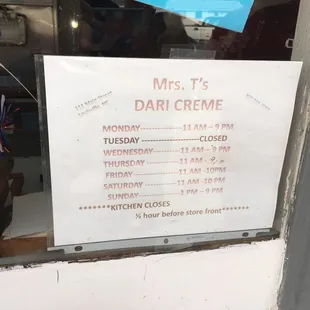 Mrs. T's
DARI CREME
MONDAY----------------11 AM – 9 PM
TUESDAY----------------------CLOSED
WEDNESDAY-----------11 AM - 9 PM
THURSDAY--------------11 AM -
FRIDAY-------------------11 AM -10PM
SATURDAY---------------11 AM -10 PM
SUNDAY-------------------1 PM – 9 PM
*******KITCHEN CLOSES
½ hour before store front*******